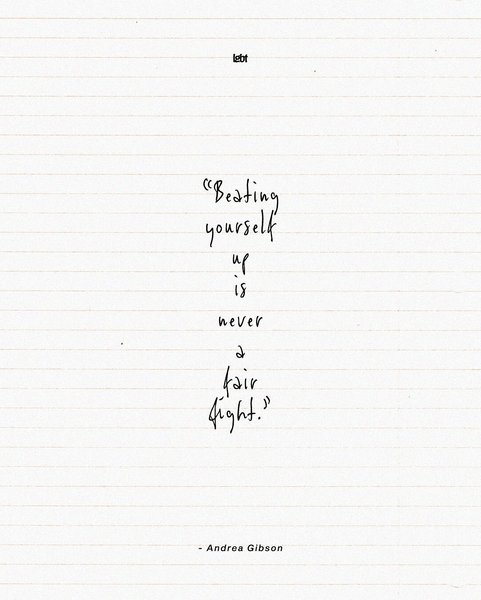 “Beating
yourself
up
is
never
a
fair
fight.”
- Andrea Gibson